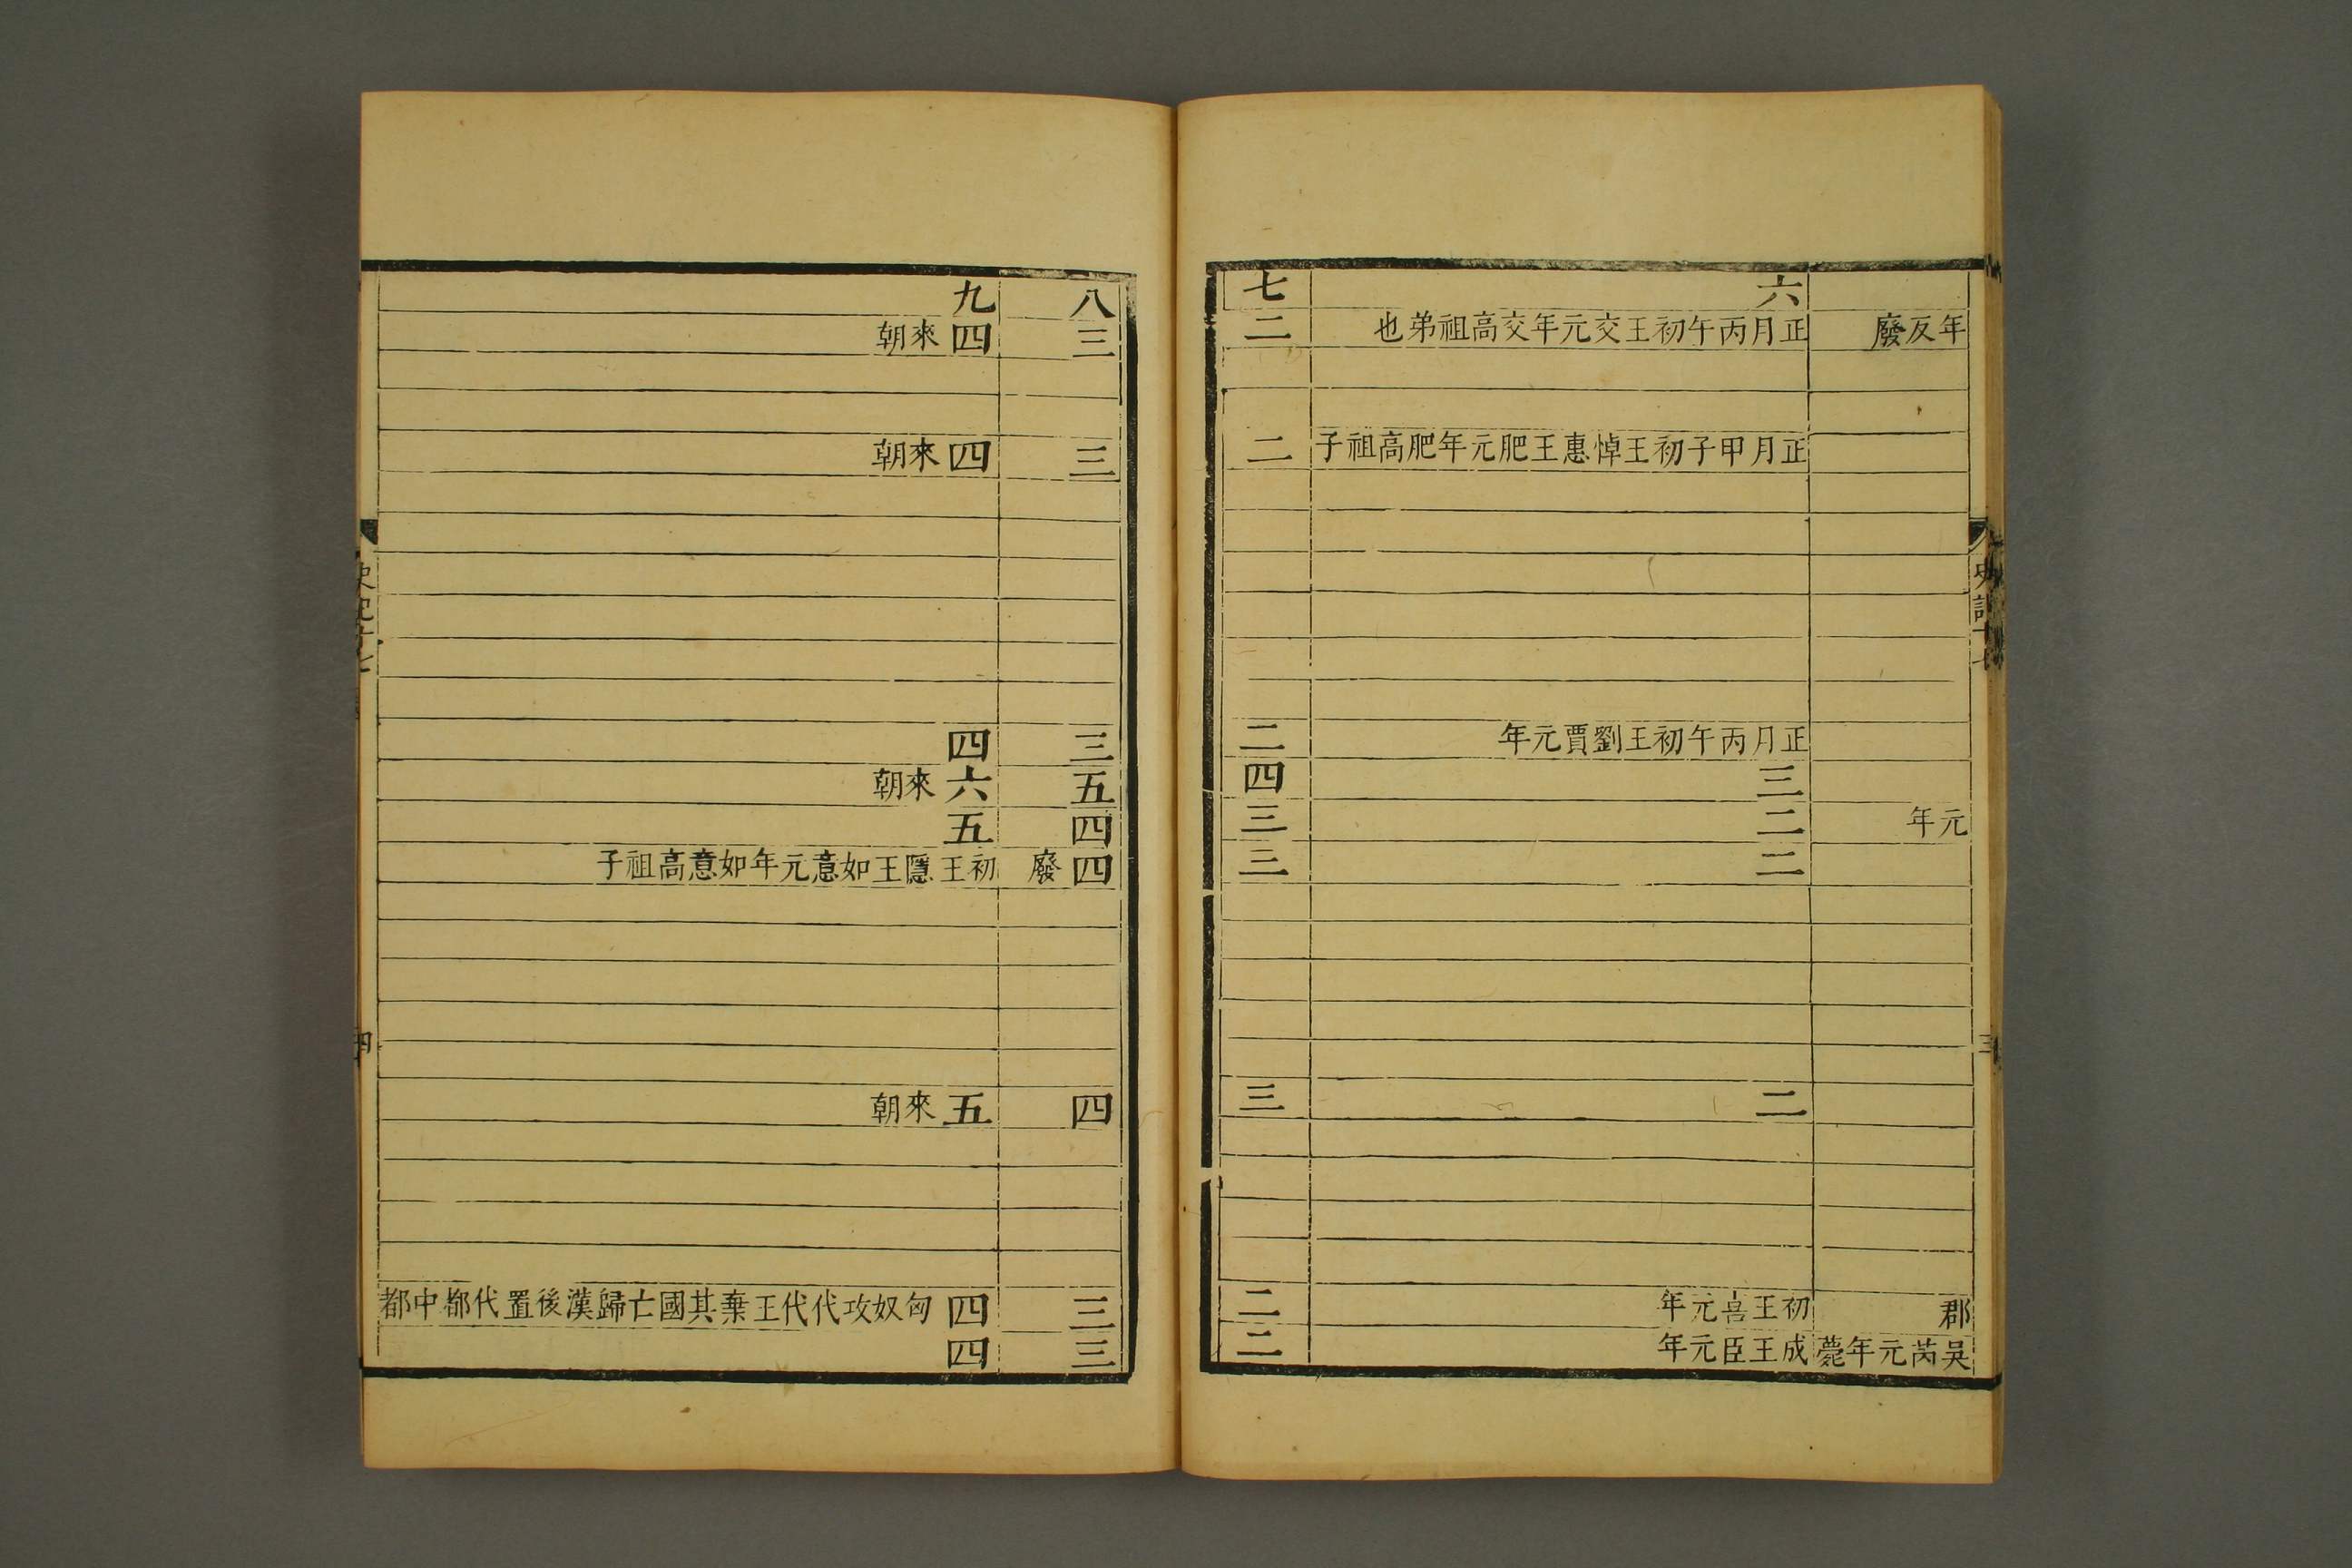 年反廢
元年
郡
吳芮元年薨
六
正月丙午初王交元年交高祖弟也
正月甲子初王悼惠王肥元年肥高祖子
正月丙午初王劉賈元年
三
二
二
二
初王喜元年
成王臣元年
七
二
二
二
四
三
三
三
二
二
史記十七
三
八
三
三
三
五
四
四 廢
四
三
三
九
四 來朝
四 來朝
四
六 來朝
五
初王隱王如意元年如意高祖子
五 來朝
四 匈奴攻代代王棄其國亡歸漢後置代都中都
四
史記十七
四